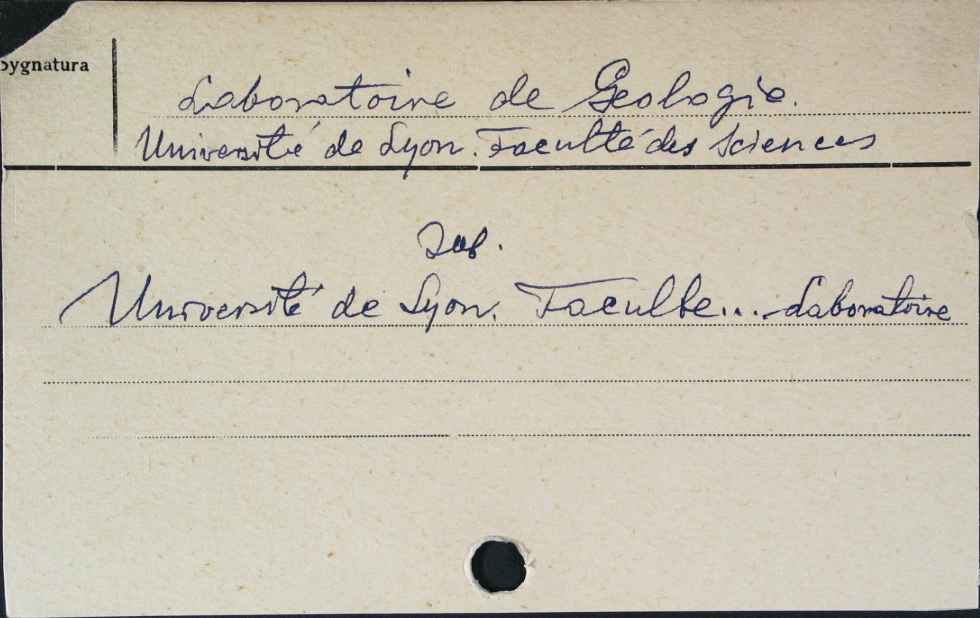 Sygnatura
Laboratoire de Geologie.
Université de Lyon. Faculté des Sciences
Université de Lyon. Faculte... Laboratoire